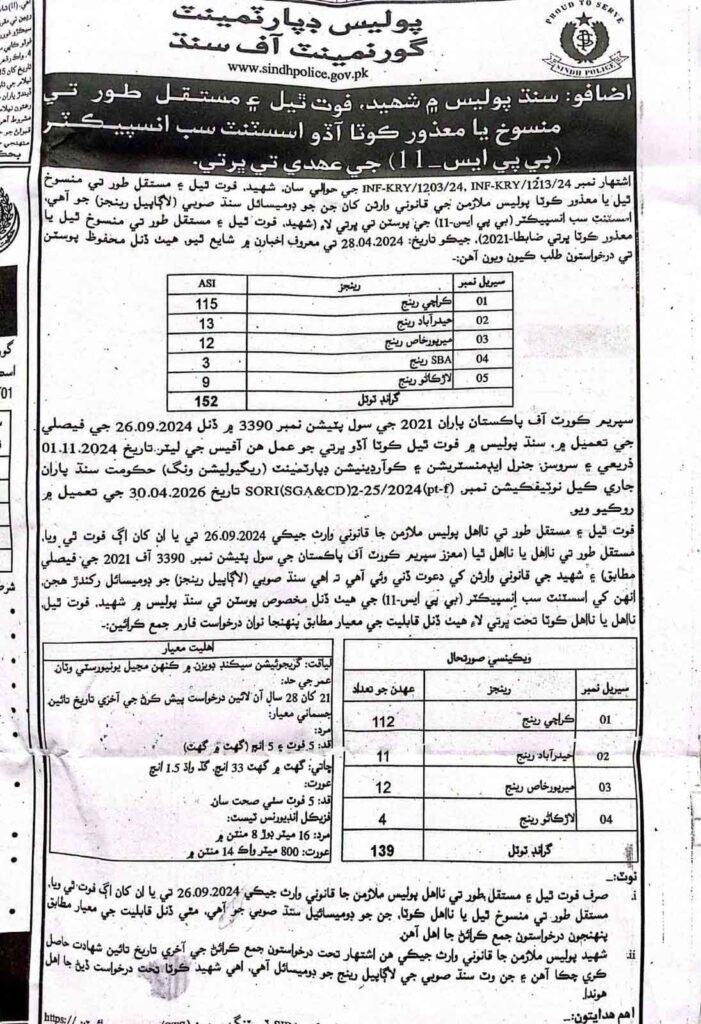 پوليس ڊپارٽمينٽ
گورنمينٽ آف سنڌ
www.sindhpolice.gov.pk
PROUD TO SERVE
SINDH POLICE
اضافو: سنڌ پوليس ۾ شهيد، فوت ٿيل ۽ مستقل طور تي
منسوخ يا معذور ڪوٽا آڌو اسسٽنٽ سب انسپيڪٽر
(بي پي ايس_11) جي عهدي تي ڀرتي.
اشتهار نمبر INF-KRY/1203/24, INF-KRY/1213/24 جي حوالي سان، شهيد، فوت ٿيل ۽ مستقل طور تي منسوخ
ٿيل يا معذور ڪوٽا پوليس ملازمن جي قانوني وارثن کان جن جو ڊوميسائل سنڌ صوبي (لاڳاپيل رينجز) جو آهي،
اسسٽنٽ سب انسپيڪٽر (بي پي ايس-11) جي پوسٽن تي ڀرتي لاءِ (شهيد، فوت ٿيل ۽ مستقل طور تي منسوخ ٿيل يا
معذور ڪوٽا ڀرتي ضابطا-2021)، جيڪو تاريخ: 28.04.2024 تي معروف اخبارن ۾ شايع ٿيو، هيٺ ڏنل محفوظ پوسٽن
تي درخواستون طلب ڪيون ويون آهن:-
سيريل نمبر رينجز ASI
01 ڪراچي رينج 115
02 حيدرآباد رينج 13
03 ميرپورخاص رينج 12
04 SBA رينج 3
05 لاڙڪاڻو رينج 9
گرانڊ ٽوٽل 152
سپريم ڪورٽ آف پاڪستان پاران 2021 جي سول پٽيشن نمبر 3390 ۾ ڏنل 26.09.2024 جي فيصلي
جي تعميل ۾، سنڌ پوليس ۾ فوت ٿيل ڪوٽا آڌو ڀرتي جو عمل هن آفيس جي ليٽر تاريخ 01.11.2024
ذريعي ۽ سروسز، جنرل ايڊمنسٽريشن ۽ ڪوآرڊينيشن ڊپارٽمينٽ (ريگيوليشن ونگ) حڪومت سنڌ پاران
جاري ڪيل نوٽيفڪيشن نمبر SORI(SGA&CD)2-25/2024(pt-f) تاريخ 30.04.2026 جي تعميل ۾
روڪيو ويو.
فوت ٿيل ۽ مستقل طور تي نااهل پوليس ملازمن جا قانوني وارث جيڪي 26.09.2024 تي يا ان کان اڳ فوت ٿي ويا،
مستقل طور تي نااهل يا نااهل ٿيا (معزز سپريم ڪورٽ آف پاڪستان جي سول پٽيشن نمبر، 3390 آف 2021 جي فيصلي
مطابق) ۽ شهيد جي قانوني وارثن کي دعوت ڏني وئي آهي ته اهي سنڌ صوبي (لاڳاپيل رينجز) جو ڊوميسائل رکندڙ هجن،
انهن کي اسسٽنٽ سب انسپيڪٽر (بي پي ايس-11) جي هيٺ ڏنل مخصوص پوسٽن تي سنڌ پوليس ۾ شهيد، فوت ٿيل،
نااهل يا نااهل ڪوٽا تحت ڀرتي لاءِ هيٺ ڏنل قابليت جي معيار مطابق پنهنجا نوان درخواست فارم جمع ڪرائين:-
ويڪينسي صورتحال
سيريل نمبر رينجز عهدن جو تعداد
01 ڪراچي رينج 112
02 حيدرآباد رينج 11
03 ميرپورخاص رينج 12
04 لاڙڪاڻو رينج 4
گرانڊ ٽوٽل 139
اهليت معيار
لياقت: گريجوئيشن سيڪنڊ ڊويزن ۾ ڪنهن مڃيل يونيورسٽي وٽان.
عمر جي حد:
21 کان 28 سال آن لائين درخواست پيش ڪرڻ جي آخري تاريخ تائين
جسماني معيار:
مرد:
قد: 5 فوٽ ۽ 5 انچ (گهٽ ۾ گهٽ)
ڇاتي: گهٽ ۾ گهٽ 33 انچ، گڏ واڌ 1.5 انچ
عورت:
قد: 5 فوٽ سٺي صحت سان.
فزيڪل انڊيورنس ٽيسٽ:
مرد: 16 ميٽر ڊوڙ 8 منٽن ۾
عورت: 800 ميٽر واڪ 14 منٽن ۾
نوٽ:-
i. صرف فوت ٿيل ۽ مستقل طور تي نااهل پوليس ملازمن جا قانوني وارث جيڪي 26.09.2024 تي يا ان کان اڳ فوت ٿي ويا،
مستقل طور تي منسوخ ٿيل يا نااهل ڪوٽا، جن جو ڊوميسائيل سنڌ صوبي جو آهي، مٿي ڏنل قابليت جي معيار مطابق
پنهنجون درخواستون جمع ڪرائڻ جا اهل آهن.
ii. شهيد پوليس ملازمن جا قانوني وارث جيڪي هن اشتهار تحت درخواستون جمع ڪرائڻ جي آخري تاريخ تائين شهادت حاصل
ڪري چڪا آهن ۽ جن وٽ سنڌ صوبي جي لاڳاپيل رينج جو ڊوميسائل آهي، اهي شهيد ڪوٽا تحت درخواست ڏيڻ جا اهل
هوندا.
اهم هدايتون:-
https://